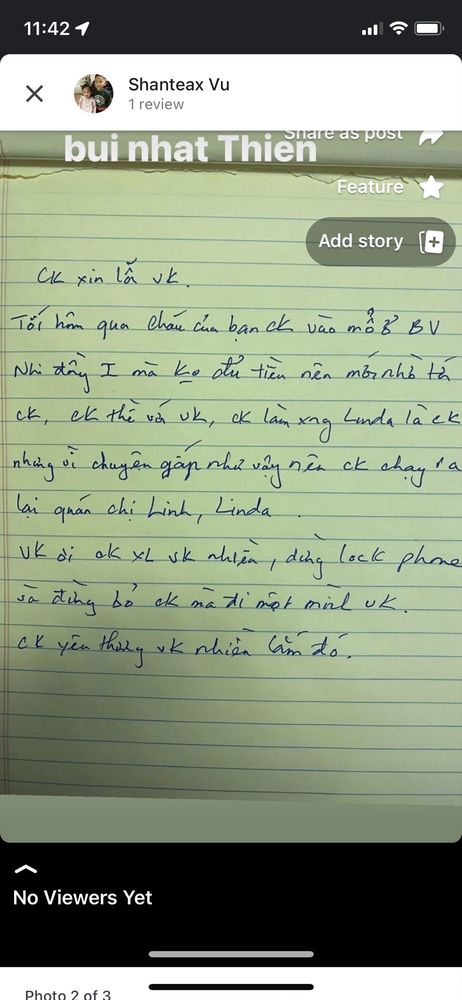 11:42
Shanteax Vu
1 review
bui nhat Thien
Share as post
Feature
Add story
CK xin lỗi vk.
Tối hôm qua cháu của bạn ck vào mổ ở BV
Nhi đồng I mà ko đủ tiền nên mới nhờ tới
ck, ck thề với vk, ck làm xng Linda là ck
nhưng vì chuyện gấp như vậy nên ck chạy ra
lại quán chị Linh, Linda.
vk ơi ck XL vk nhiều, đừng lock phone
và đừng bỏ ck mà đi một mình vk.
ck yêu thương vk nhiều lắm đó.
No Viewers Yet
Photo 2 of 3